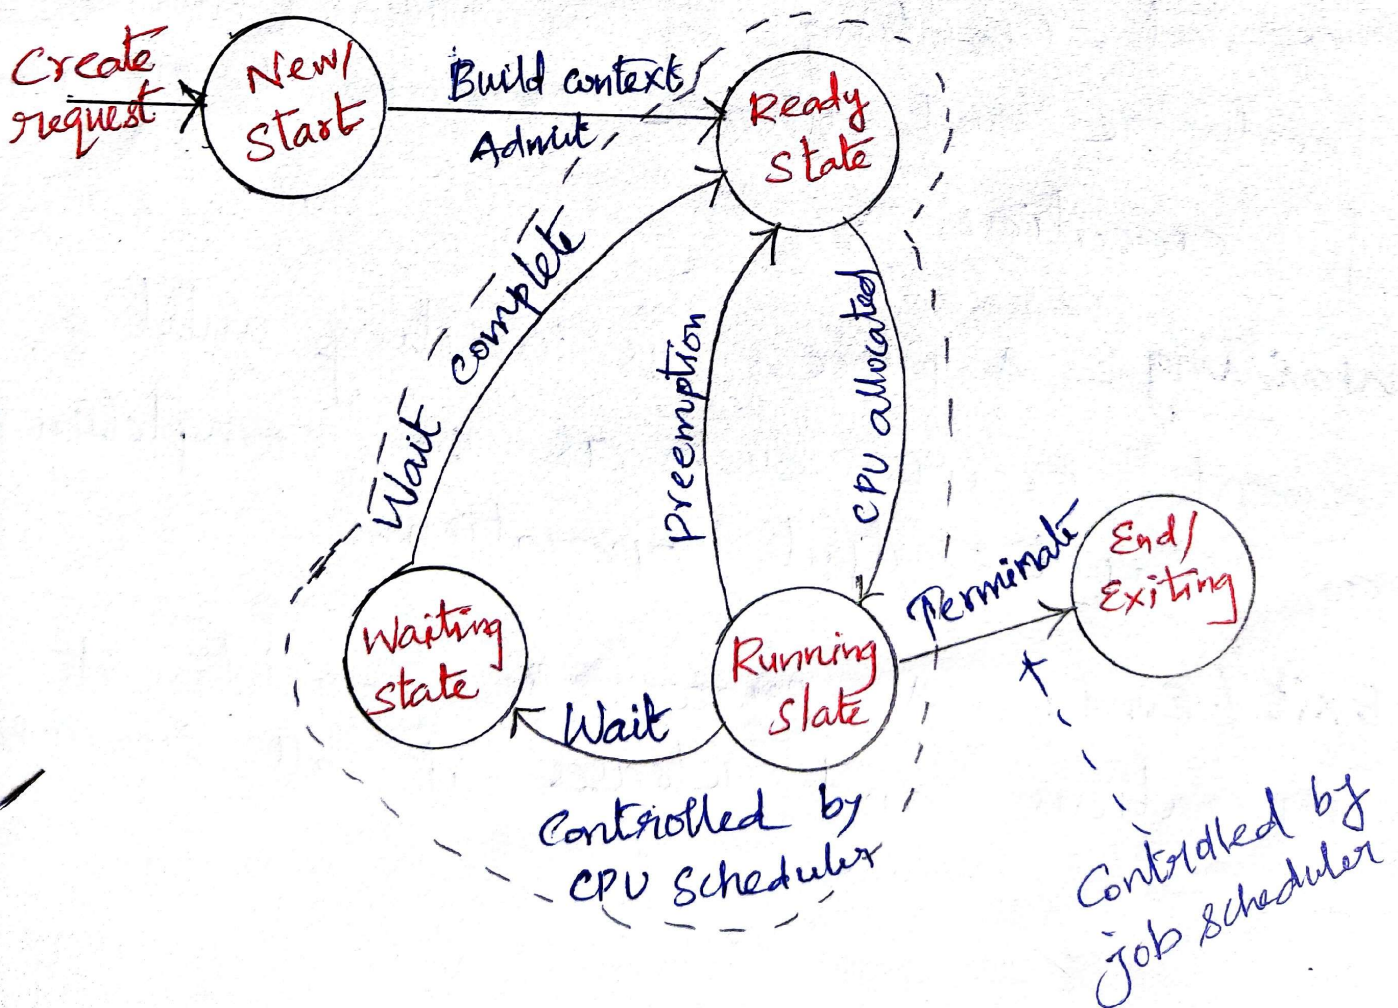 Create
request
New/
Start
Build context
Admit
Ready
State
Wait complete
Preemption
CPU allocated
Waiting
State
Wait
Running
State
Terminate
End/
Exiting
Controlled by
CPU Scheduler
Controlled by
job scheduler